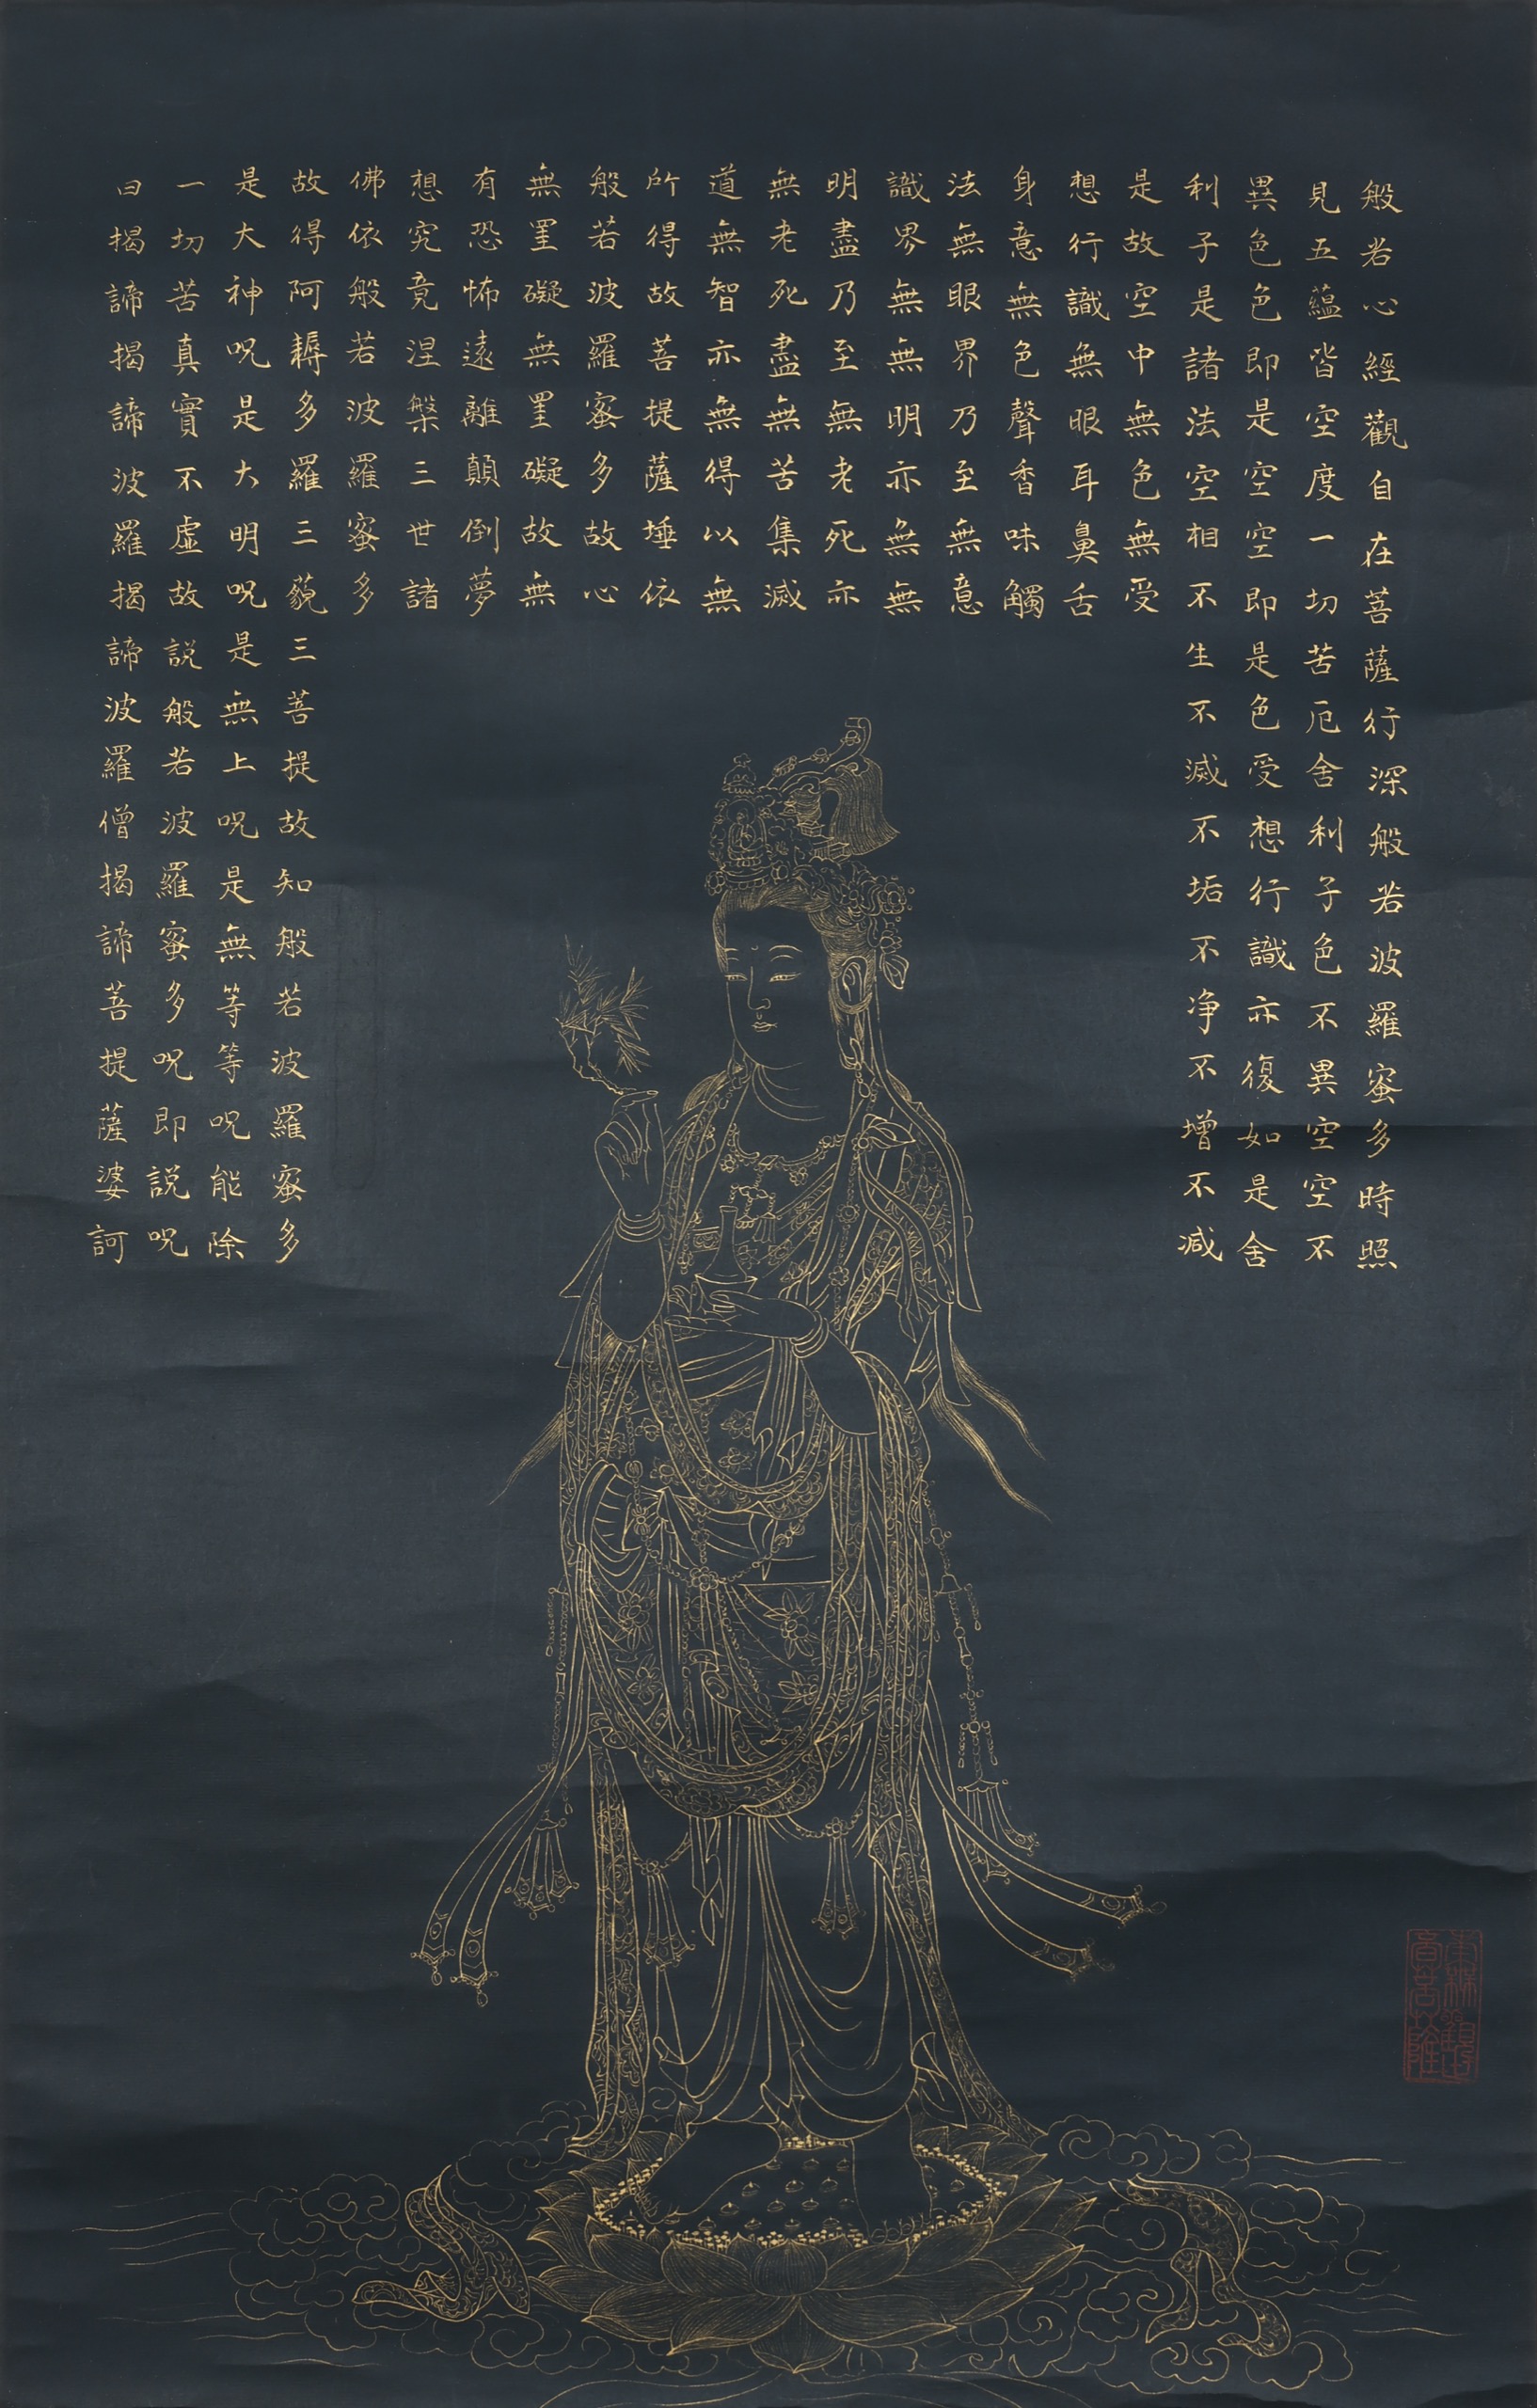 般若心經觀自在菩薩行深般若波羅蜜多時照
見五蘊皆空度一切苦厄舍利子色不異空空不
異色色即是空空即是色受想行識亦復如是舍
利子是諸法空相不生不滅不垢不净不增不减
是故空中無色無受
想行識無眼耳鼻舌
身意無色聲香味觸
法無眼界乃至無意
識界無無明亦無無
明盡乃至無老死亦
無老死盡無苦集滅
道無智亦無得以無
所得故菩提薩埵依
般若波羅蜜多故心
無罣礙無罣礙故無
有恐怖遠離顛倒夢
想究竟涅槃三世諸
佛依般若波羅蜜多
故得阿耨多羅三藐三菩提故知般若波羅蜜多
是大神呪是大明呪是無上呪是無等等呪能除
一切苦真實不虛故説般若波羅蜜多呪即説呪
曰揭諦揭諦波羅揭諦波羅僧揭諦菩提薩婆訶
東林觀世
音菩薩